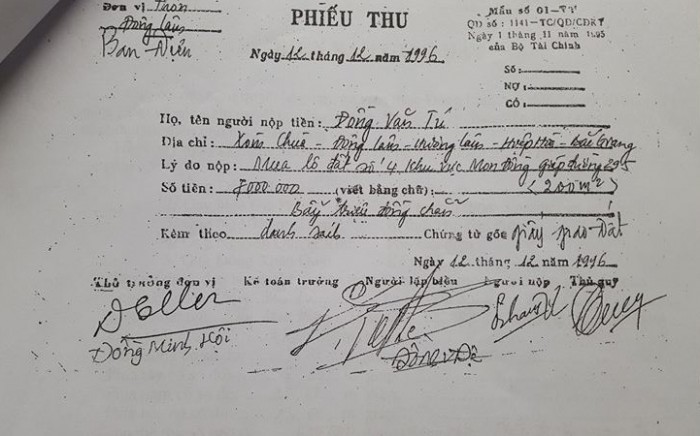 Đơn vị Thôn
Mẫu số 01-VT
Đông Lâm
PHIẾU THU
QĐ số : 1141-TC/QĐ/CĐKT
Ngày 1 tháng 11 năm 1995
của Bộ Tài Chính
Ngày 12 tháng 12 năm 1996
Số:
NỢ:
CÓ:
Họ, tên người nộp tiền: Đồng Văn Tú
Địa chỉ: Xóm Chùa - Đông Lâm - Hương Lâm - Hiệp Hòa - Bắc Giang
Lý do nộp: Mua lô đất số 4 Khu vực Mon Đông giáp đường 295
Số tiền: 7000.000 (viết bằng chữ): (200m²)
Bẩy triệu đồng chẵn
Kèm theo danh Chứng từ gốc giấy giao Đất
Ngày 12 tháng 12 năm 1996
Thủ trưởng đơn vị Kế toán trưởng Người lập biểu Người nộp Thủ quỹ
Đồng Minh Hội